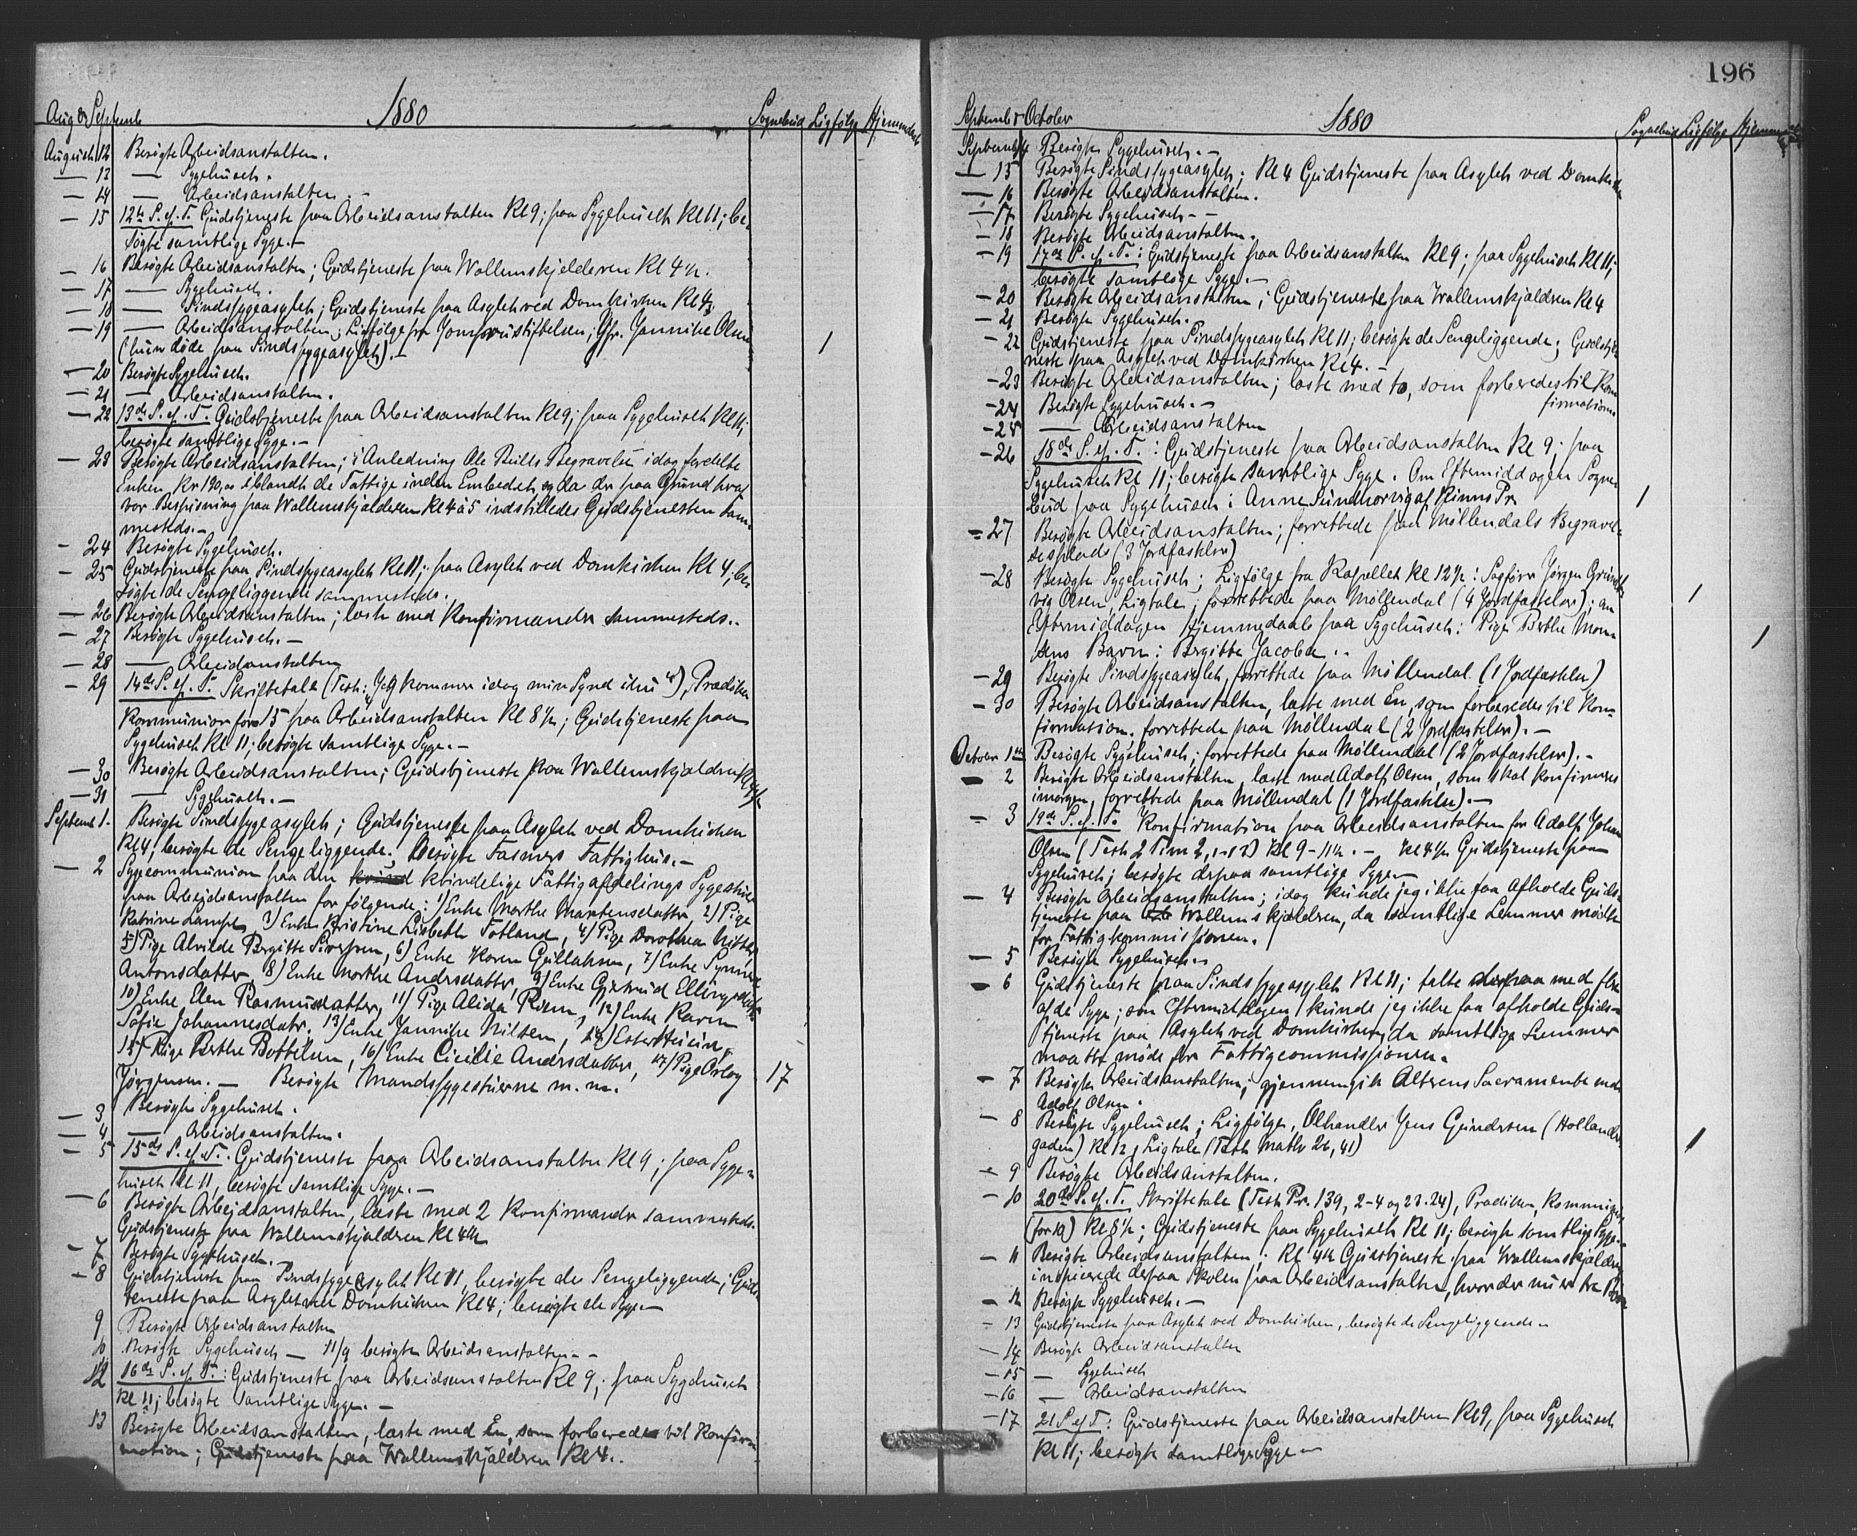 Aug & Septemb 1880 Sognebud Ligfølge Hjemmedaab
August 12 Besøgte Arbeidsanstalten.
— 13 — Sygehuset.
— 14 — Arbeidsanstalten. -
— 15 12te S. ef. T. Gudstjeneste paa Arbeidsanstalten Kl 9; paa Sygehuset Kl 11; be-
søgte samtlige Syge. —
— 16 Besøgte Arbeidsanstalten; Gudstjeneste paa Wallemskjelderen Kl 4½.
— 17 — Sygehuset.
— 18 — Sindssygeasylet; Gudstjeneste paa Asylet ved Domkirken Kl 4;
— 19 — Arbeidsanstalten; Ligfølge fra Jomfrustiftelsen, Jfr. Jannike Olsen
(hun døde paa Sindssygeasylet). — 1
— 20 Besøgte Sygehuset.
— 21 — Arbeidsanstalten.
— 22 13de S. ef. T. Gudstjeneste paa Arbeidsanstalten Kl 9; paa Sygehuset Kl 11;
besøgte samtlige Syge. —
— 23 Besøgte Arbeidsanstalten; i Anledning Ole Bulls Begravelse idag fordelte
Enken Kr 190,00 iblandt de Fattige inden Embedet og da der paa Grund her-
vor Bespisning paa Wallemskjelderen Kl 4 à 5 indstilledes Gudstjenesten sam-
mesteds. —
— 24 Besøgte Sygehuset.
— 25 Gudstjeneste paa Sindssygeasylet Kl 11; paa Asylet ved Domkirken Kl 4; be-
søgte de Sengeliggende sammesteds.
— 26 Besøgte Arbeidsanstalten; læste med Konfirmander sammesteds..
— 27 Besøgte Sygehuset. —
— 28 — Arbeidsanstalten
— 29 14de S. ef. T. Skriftetale (Text: Jeg kommer idag min Synd ihu), Prædiken
Kommunion for 15 paa Arbeidsanstalten Kl 8½; Gudstjeneste paa
Sygehuset Kl 11; besøgte samtlige Syge. —
— 30 Besøgte Arbeidsanstalten; Gudstjeneste paa Wallemskjeldren Kl 4½
— 31 — Sygehuset. —
Septemb 1. Besøgte Sindssygeasylet; Gudstjeneste paa Asylet ved Domkirken
Kl 4; besøgte de Sengeliggende. Besøgte Fasmers Fattighus. —
— 2 Sygecommunion paa den kvindelige Fattigafdelings Sygestuer
paa Arbeidsanstalten for følgende: 1) Enke Marthe Martensdatter, 2) Pige
Katrine Lampe, 3) Enke Kristine Lisbeth Fotland, 4) Pige Dorothea Nitter
5) Pige Alvilde Birgitte Siversen, 6) Enke Karen Gullaksen, 7) Enke Synneve
Antonsdatter, 8) Enke Marthe Andersdatter, 9) Enke Gjertrud Ellingsdatter
10) Enke Elen Rasmusdatter, 11) Pige Alida Riem, 12) Enke Karen
Sofie Johannesdatr. 13) Enke Jannike Nilsen, 14) Ester Heiein,
15) Pige Berthe Bottilsen, 16) Enke Cicilie Andersdatter, 17) Pige Orley
Jørgensen. — Besøgte Mandssygestuerne m. m. 17
— 3 Besøgte Sygehuset.
— 4 — Arbeidsanstalten.
— 5 15de S. ef. T. Gudstjeneste paa Arbeidsanstalten Kl 9; paa Syge-
huset Kl 11, besøgte samtlige Syge. —
— 6 Besøgte Arbeidsanstalten, læste med 2 Konfirmander sammesteds.
Gudstjeneste paa Wallemskjeldren Kl 4½
— 7 Besøgte Sygehuset.
— 8 Gudstjeneste paa Sindssygeasylet Kl 11, besøgte de Sengeliggende; Guds-
tjeneste paa Asylet ved Domkirken Kl 4; besøgte de Syge. —
9 Besøgte Arbeidsanstalten
10 Besøgte Sygehuset — 11/9 besøgte Arbeidsanstalten - -
12 16de S. ef. T.: Gudstjeneste paa Arbeidsanstalten Kl 9; paa Sygehuset
Kl 11; besøgte samtlige Syge. —
13 Besøgte Arbeidsanstalten, læste med En, som forberedes til Konfir-
mation; Gudstjeneste paa Wallemskjeldren Kl 4..
196
Septemb & October 1880 Sognebud Ligfølge Hjemmedaab
Septemb 14 Besøgte Sygehuset. —
— 15 Besøgte Sindssygeasylet; Kl 4 Gudstjeneste paa Asylet ved Domkirken
— 16 Besøgte Arbeidsanstalten.
— 17 Besøgte Sygehuset - -
— 18 Besøgte Arbeidsanstalten.
— 19 17de S. ef. T.: Gudstjeneste paa Arbeidsanstalten Kl 9; paa Sygehuset Kl 11;
besøgte samtlige Syge. —
— 20 Besøgte Arbeidsanstalten; Gudstjeneste paa Wallemskjældren Kl 4
— 21 Besøgte Sygehuset.
— 22 Gudstjeneste paa Sindssygeasylet Kl 11; besøgte de Sengeliggende; Gudstje-
neste paa Asylet ved Domkirken Kl 4. —
— 23 Besøgte Arbeidsanstalten; læste med to, som forberedes til Kon-
firmation
— 24 Besøgte Sygehuset. —
— 25 — Arbeidsanstalten
— 26 18de S. ef. T.: Gudstjeneste paa Arbeidsanstalten Kl 9; paa
Sygehuset Kl 11; besøgte samtlige Syge. Om Eftermiddagen Sogne-
bud paa Sygehuset: Anne Sunmorsvig af Kinns Pr 1
— 27 Besøgte Arbeidsanstalten; forrettede paa Møllendals Begravel-
sesplads (3 Jordfæstelser)
— 28 Besøgte Sygehuset; Ligfølge fra Kapellet Kl 12½: Sagfører Jørgen Grundt-
vig Olsen, Ligtale; forrettede paa Møllendal (4 Jordfæstelser); om 1
Eftermiddagen Hjemmedaab paa Sygehuset: Pige Berthe Mon- 1
sens Barn: Birgitte Jacoba..
— 29 Besøgte Sindssygeasylet, forrettede paa Møllendal. (1 Jordfæstelse)
— 30 Besøgte Arbeidsanstalten, læste med En, som forberedes til Kon-
firmation. forrettede paa Møllendal (2 Jordfæstelser). —
October 1ste Besøgte Sygehuset; forrettede paa Møllendal (2 Jordfæstelser). -
— 2 Besøgte Arbeidsanstalten, læste med Adolf Olsen, som skal konfirmeres
imorgen, forrettede paa Møllendal (1 Jordfæstelse). —
— 3 19de S. ef. T. Konfirmation paa Arbeidsanstalten for Adolf Johan
Olsen (Text 2 Tim 2, 1-13) Kl 9-11½. — Kl 4½ Gudstjeneste paa
Sygehuset; besøgte derpaa samtlige Syge —
— 4 Besøgte Arbeidsanstalten; idag kunde jeg ikke faa Afholde Guds-
tjeneste paa Wallemskjældren, da samtlige Lemmer mødte
for Fattigkommissionen.
— 5 Besøgte Sygehuset. -
— 6 Gudstjeneste paa Sindssygeasylet Kl 11; talte derpaa med flere
af de Syge; om Eftermiddagen kunde jeg ikke faa afholde Guds-
tjeneste paa Asylet ved Domkirken, da samtlige Lemmer
maatte møde for Fattigcommissionen.
— 7 Besøgte Arbeidsanstalten, gjennemgik Alterens Sacramente med
Adolf Olsen.
— 8 Besøgte Sygehuset; Ligfølge, Ølhandler Jens Gundersen (Hollender-
gaden) Kl 12, Ligtale (Text Math 26, 41) 1
— 9 Besøgte Arbeidsanstalten.
— 10 20de S. ef. T. Skriftetale (Text Ps. 139, 2-4 og 23.24), Prædiken, Kommunion
(for 10) Kl 8½; Gudstjeneste paa Sygehuset Kl 11; besøgte samtlige Syge. -
— 11 Besøgte Arbeidsanstalten; Kl 4½ Gudstjeneste paa Wallemskjeldren
inspicerede derpaa Skolen paa Arbeidsanstalten, hvor der nu er tre Børn
— 12 Besøgte Sygehuset. —
— 13 Gudstjeneste paa Asylet ved Domkirken, besøgte de Sengeliggende -
— 14 Besøgte Arbeidsanstalten
— 15 — Sygehuset
— 16 — Arbeidsanstalten
— 17 21 S ef T: Gudstjeneste paa Arbeidsanstalten Kl 9, paa Sygehuset
Kl 11; besøgte samtlige Syge —